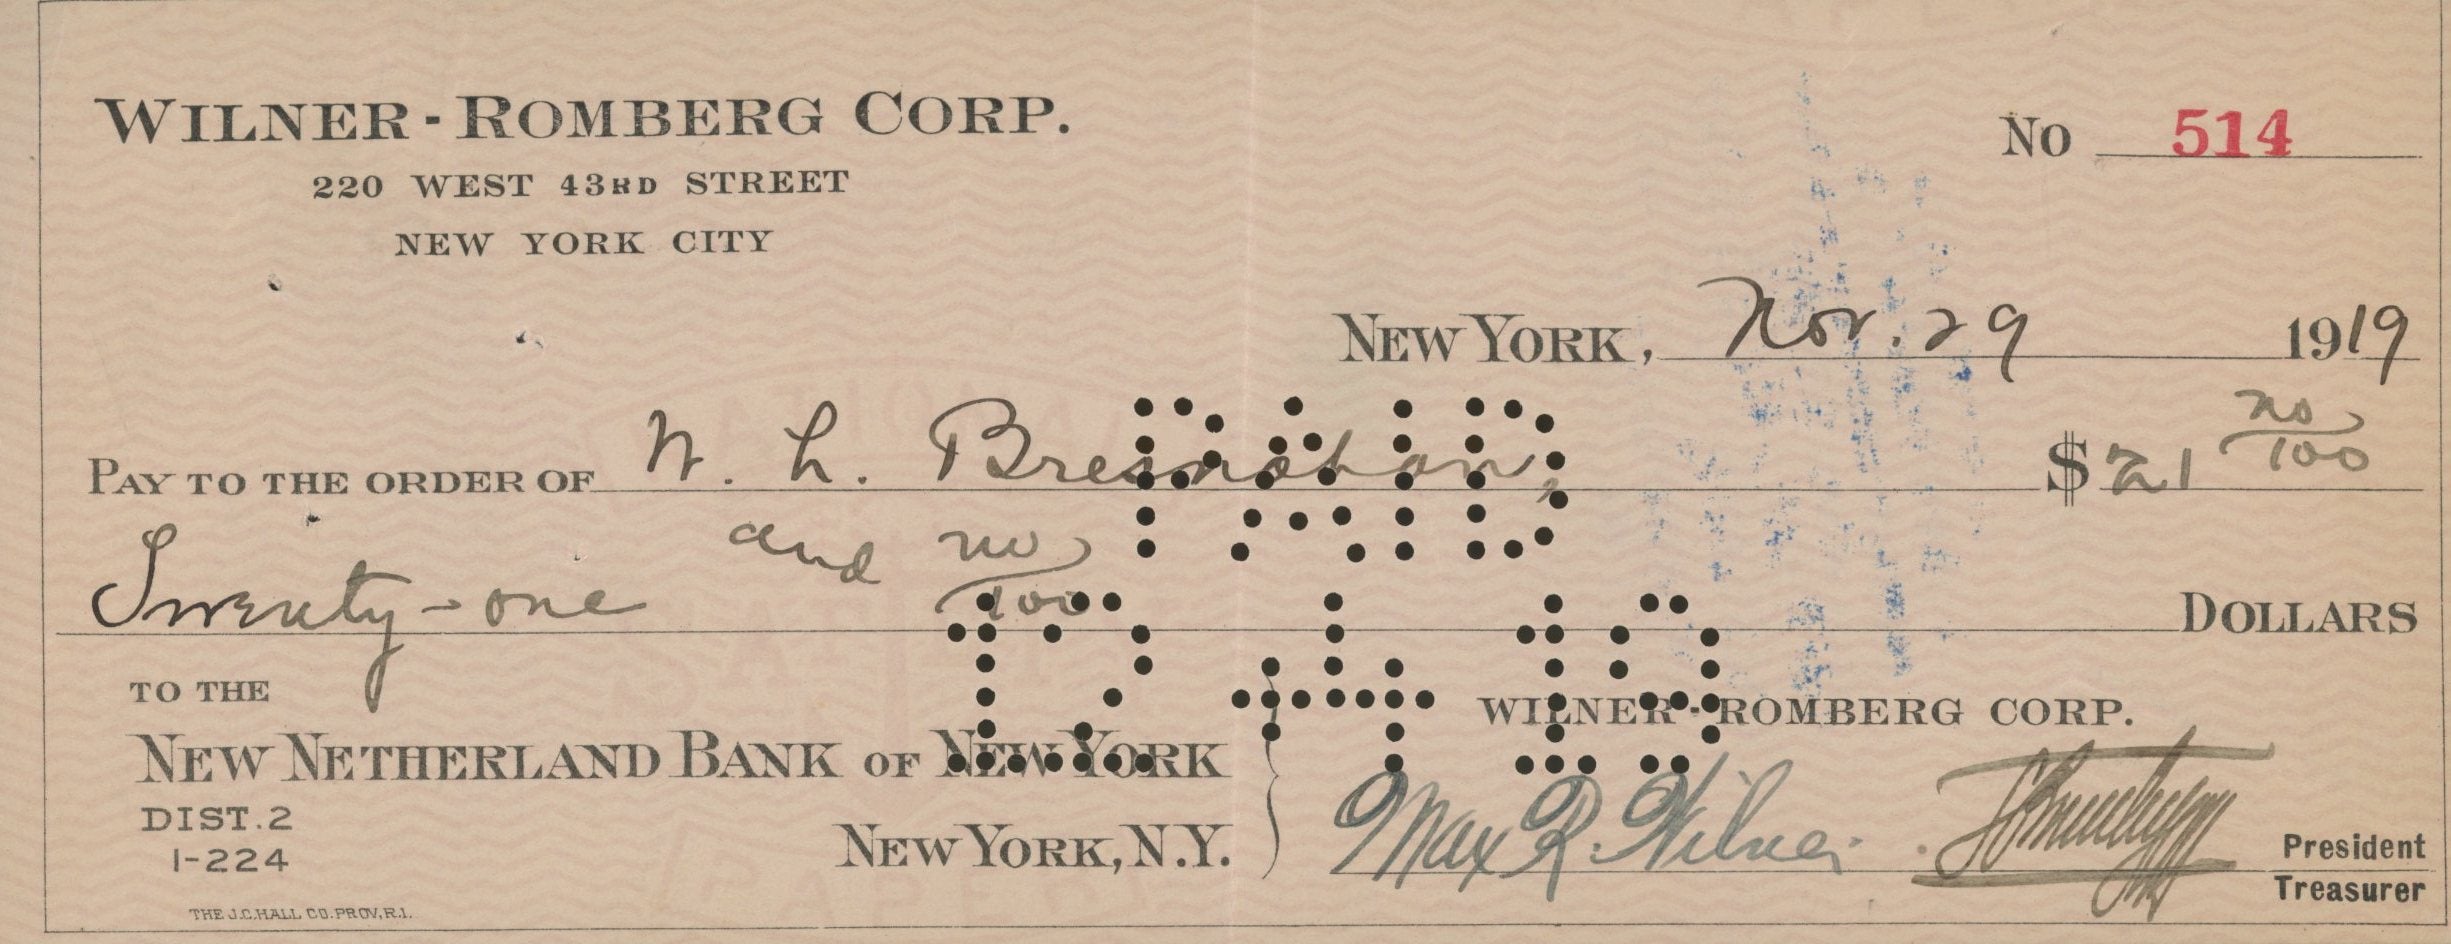 WILNER-ROMBERG CORP.
220 WEST 43RD STREET
NEW YORK CITY
No 514
NEW YORK, Nov. 29 1919
PAY TO THE ORDER OF W. L. Bresnahan, $21 no/100
Twenty-one and no/100 DOLLARS
PAID
12 4 19
TO THE
NEW NETHERLAND BANK OF NEW YORK
DIST. 2
1-224
NEW YORK, N.Y.
WILNER-ROMBERG CORP.
Max R. Wilner
President
Treasurer
THE J.C. HALL CO. PROV, R.I.